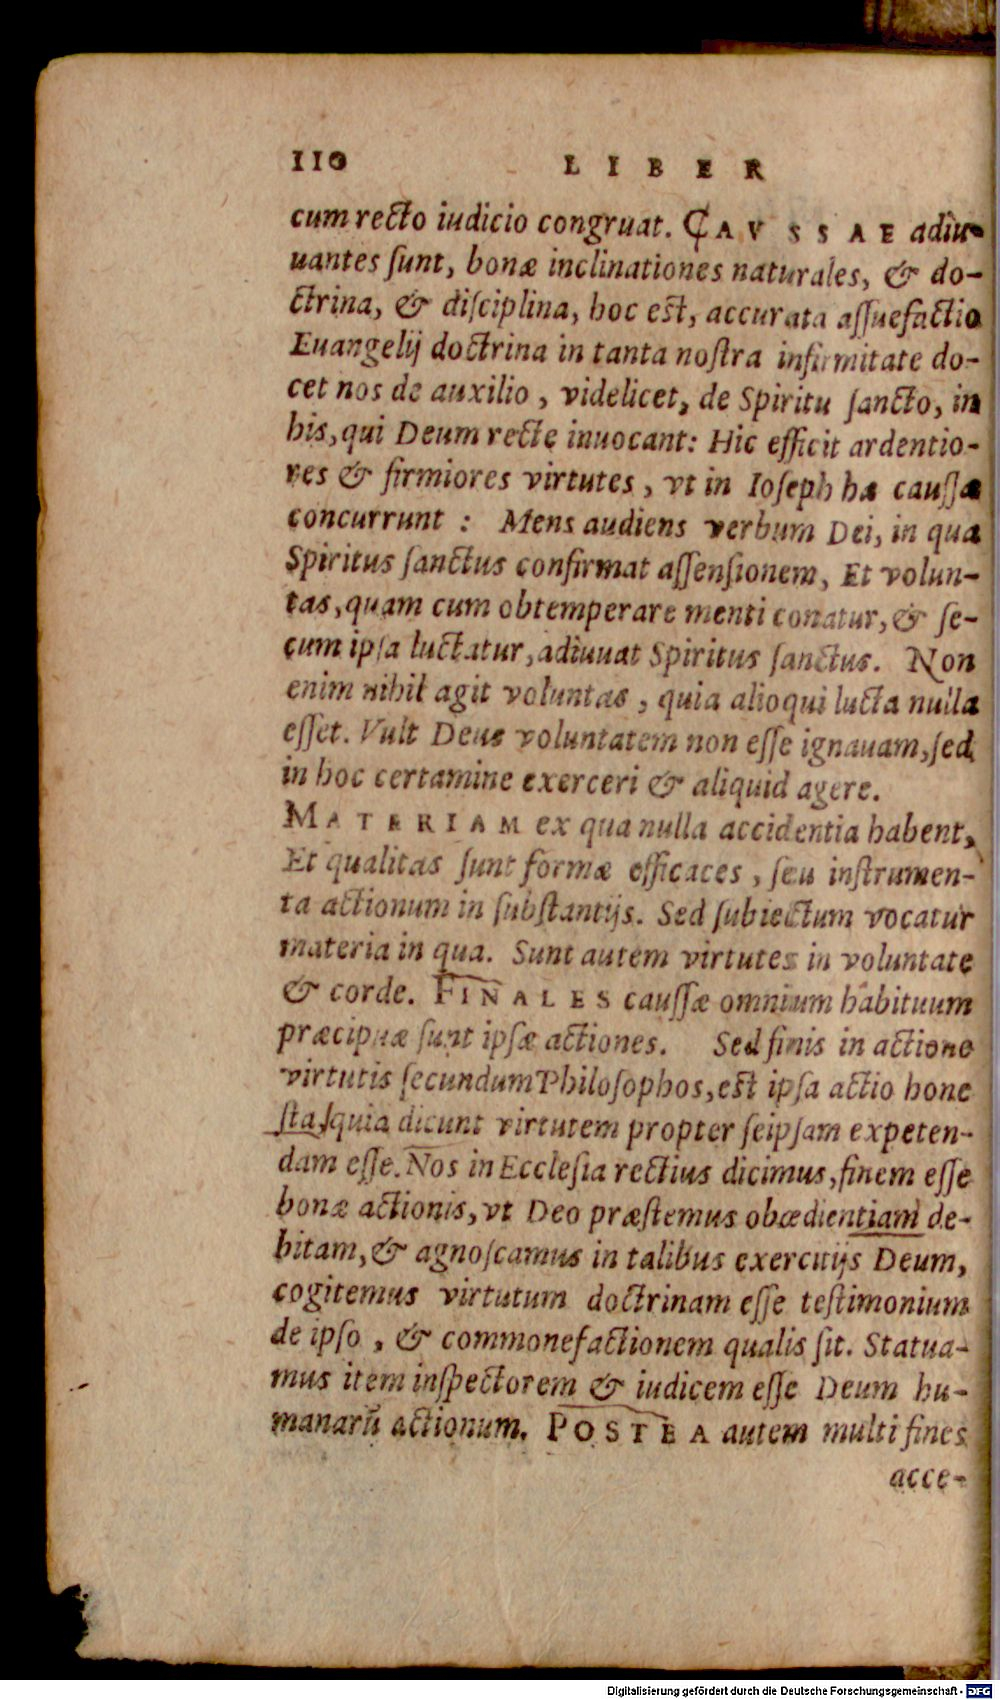 110 LIBER
cum recto iudicio congruat. CAVSSAE adiu-
uantes ſunt, bonæ inclinationes naturales, & do-
ctrina, & diſciplina, hoc est, accurata aſſuefactio
Euangelij doctrina in tanta noſtra infirmitate do-
cet nos de auxilio, videlicet, de Spiritu ſancto, in
his, qui Deum recte inuocant: Hic efficit ardentio-
res & firmiores virtutes, vt in Ioſeph hæ cauſſæ
concurrunt: Mens audiens verbum Dei, in qua
Spiritus ſanctus confirmat aſſenſionem, Et volun-
tas, quam cum obtemperare menti conatur, & ſe-
cum ipſa luctatur, adiuuat Spiritus ſanctus. Non
enim nihil agit voluntas, quia alioqui lucta nulla
eſſet. Vult Deus voluntatem non eſſe ignauam, ſed
in hoc certamine exerceri & aliquid agere.
MATERIAM ex qua nulla accidentia habent,
Et qualitas ſunt formæ efficaces, ſeu inſtrumen-
ta actionum in ſubſtantijs. Sed ſubiectum vocatur
materia in qua. Sunt autem virtutes in voluntate
& corde. FINALES cauſſæ omnium habituum
præcipuæ ſunt ipſæ actiones. Sed finis in actione
virtutis ſecundum Philoſophos, est ipſa actio hone
ſta, quia dicunt virtutem propter ſeipſam expeten-
dam eſſe. Nos in Eccleſia rectius dicimus, finem eſſe
bonæ actionis, vt Deo præſtemus obœdientiam de-
bitam, & agnoſcamus in talibus exercitijs Deum,
cogitemus virtutum doctrinam eſſe teſtimonium
de ipſo, & commonefactionem qualis ſit. Statua-
mus item inſpectorem & iudicem eſſe Deum hu-
manarũ actionum. POSTEA autem multi fines
acce-
Digitalisierung gefördert durch die Deutsche Forschungsgemeinschaft - DFG